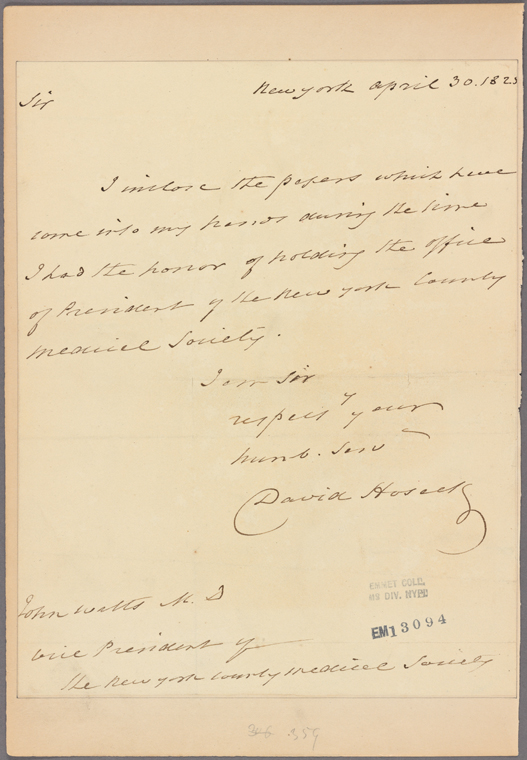 New york april 30. 1823
Sir
I inclose the papers which have
come into my hands during the time
I had the honor of holding the office
of President of the New york County
Medical Society.
I am Sir
respecty your
humb. Serv
David Hosack
EMMET COLL.
MS DIV. NYPL
EM13094
John Watts M. D
Vice President of
the New york County Medical Society
359